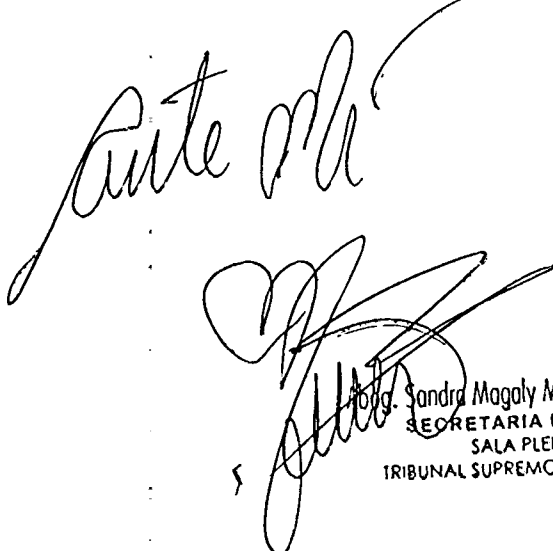 Ante Mí
Abog. Sandra Magaly M
SECRETARIA
SALA PLE
TRIBUNAL SUPREMO